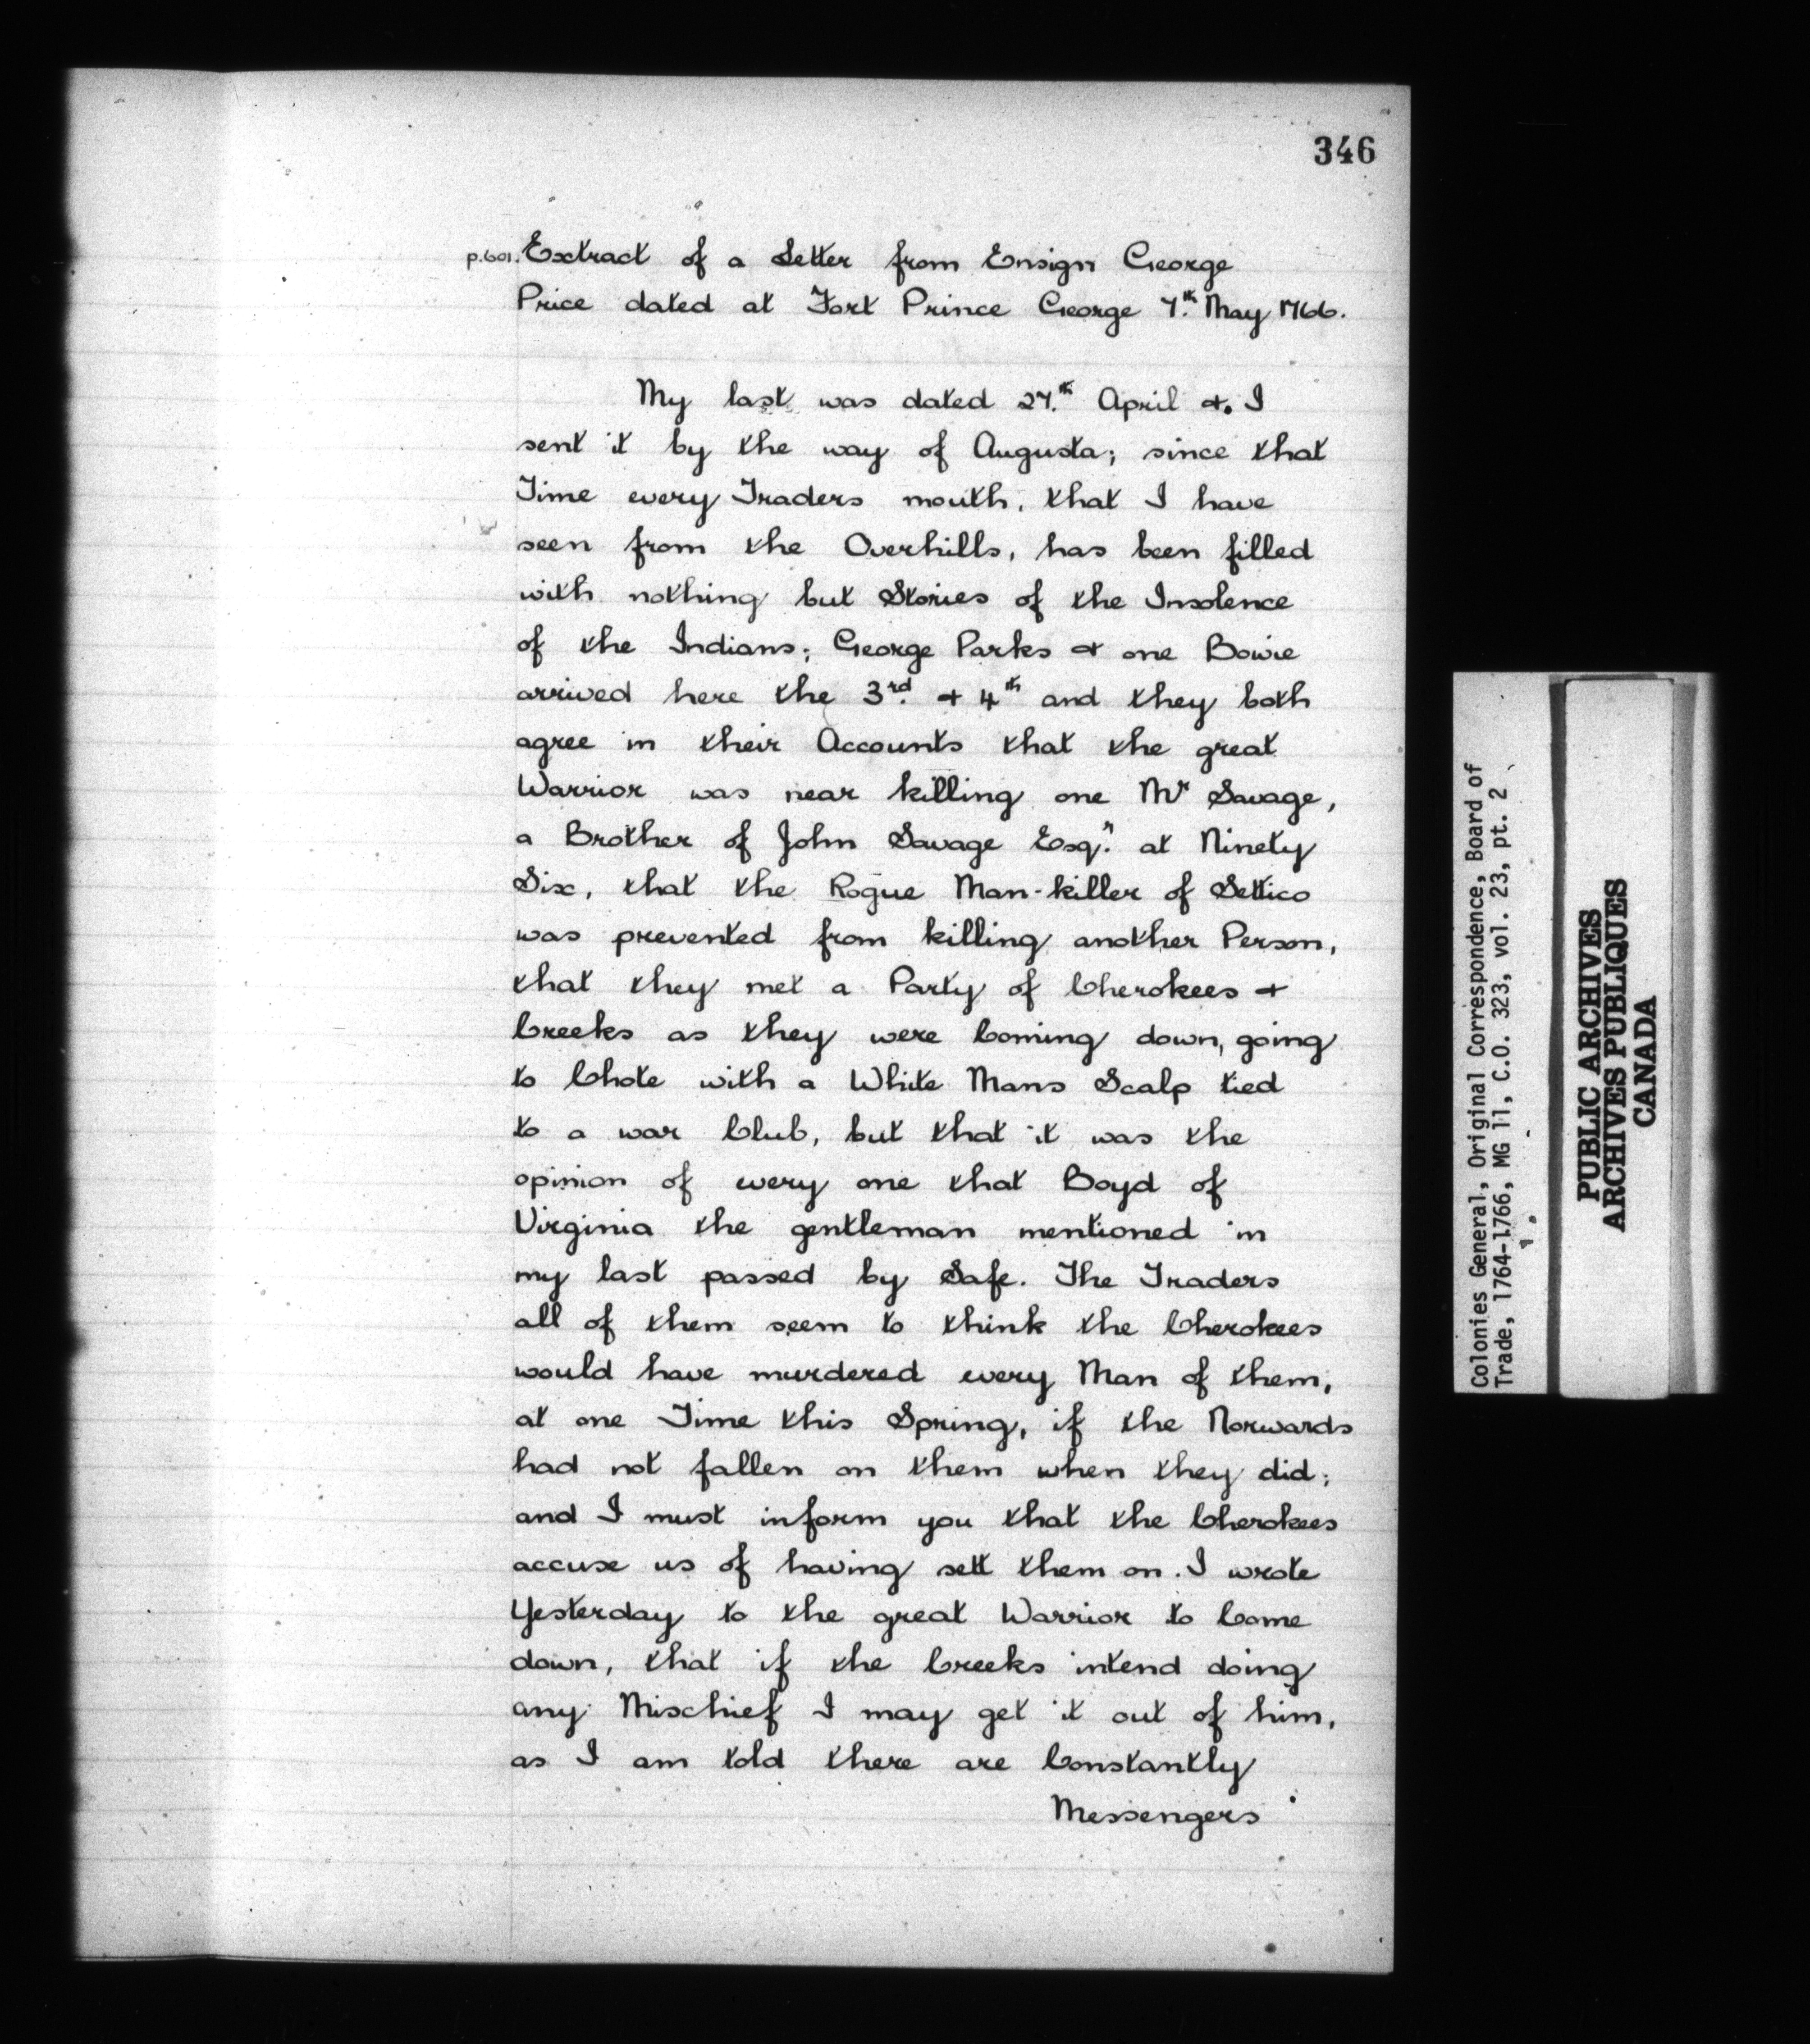 346
p.601. Extract of a Letter from Ensign George
Price dated at Fort Prince George 7.th May 1766.
My last was dated 27.th April &. I
sent it by the way of Augusta; since that
Time every Traders mouth, that I have
seen from the Overhills, has been filled
with nothing but Stories of the Insolence
of the Indians; George Parks & one Bowie
arrived here the 3rd. & 4th and they both
agree in their Accounts that the great
Warrior was near killing one Mr Savage,
a Brother of John Savage Esqr. at Ninety
Six, that the Rogue Man-killer of Settico
was prevented from killing another Person,
that they met a Party of Cherokees &
Creeks as they were Coming down, going
to Chote with a White Mans Scalp tied
to a war Club, but that it was the
opinion of every one that Boyd of
Virginia the gentleman mentioned in
my last passed by Safe. The Traders
all of them seem to think the Cherokees
would have murdered every Man of them,
at one Time this Spring, if the Norwards
had not fallen on them when they did;
and I must inform you that the Cherokees
accuse us of having sett them on. I wrote
Yesterday to the great Warrior to Come
down, that if the Creeks intend doing
any Mischief I may get it out of him,
as I am told there are Constantly
Messengers
Colonies General, Original Correspondence, Board of
Trade, 1764-1766, MG 11, C.O. 323, vol. 23, pt. 2
PUBLIC ARCHIVES
ARCHIVES PUBLIQUES
CANADA